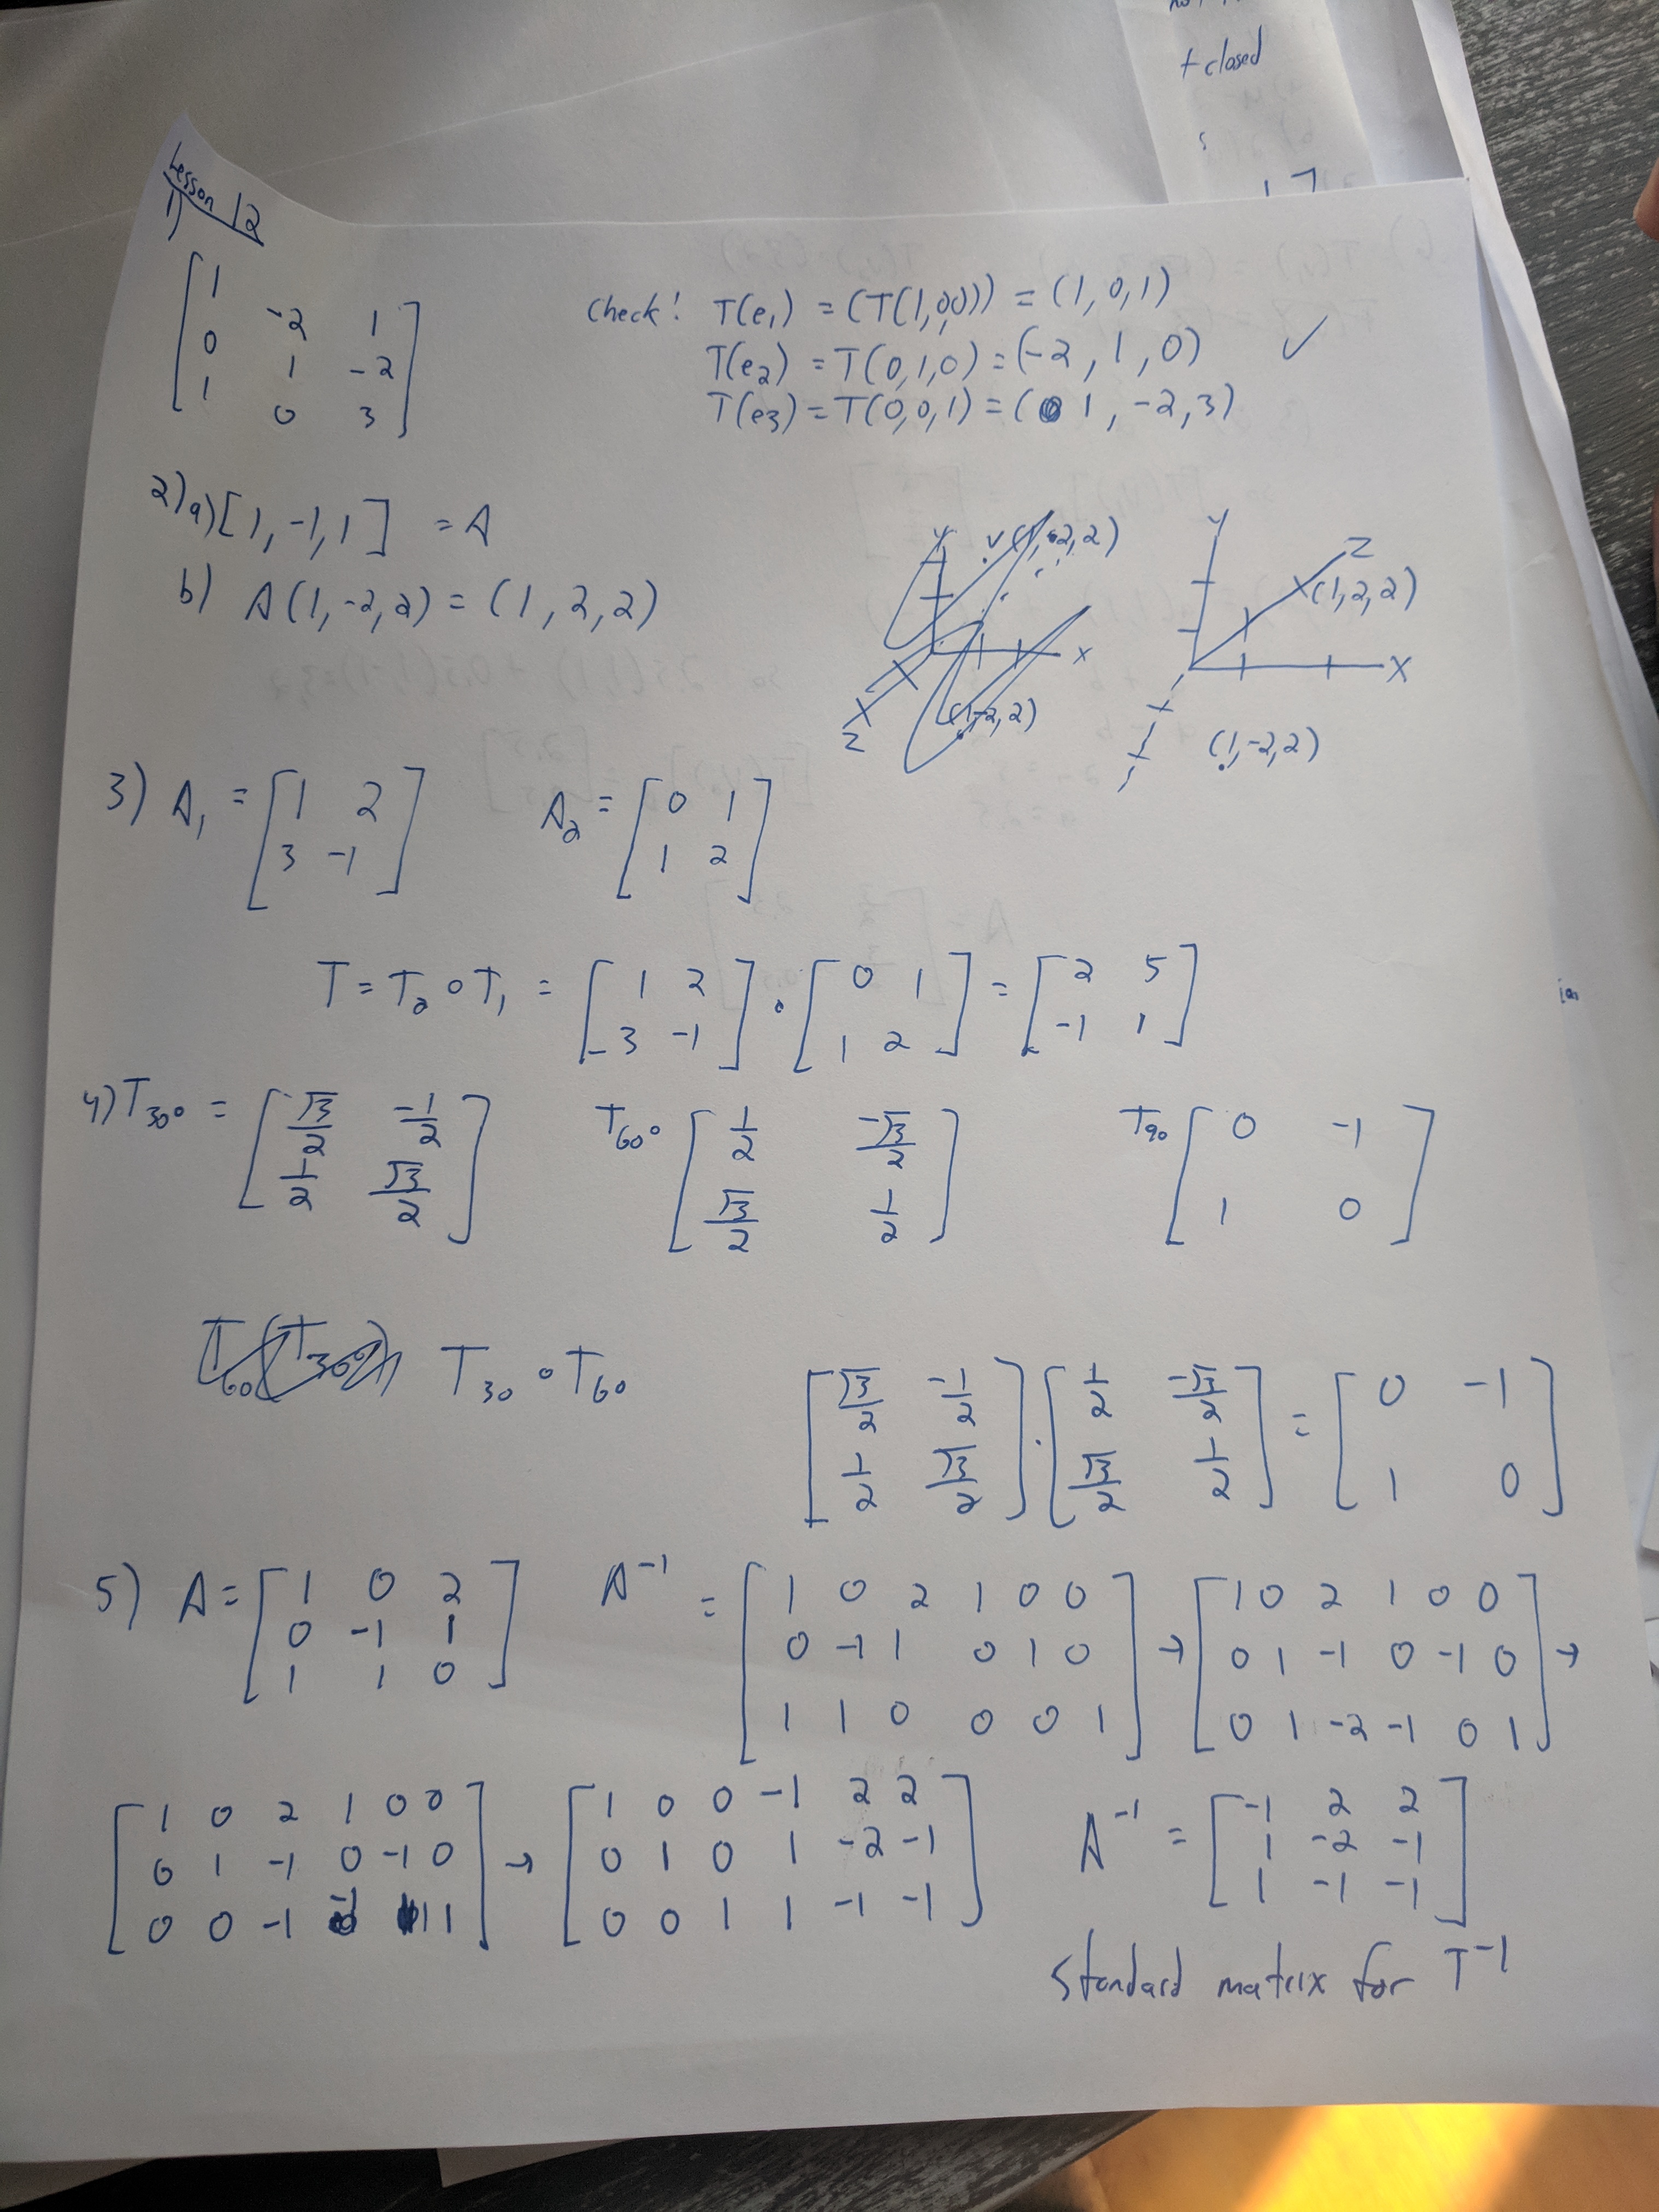 + closed
Lesson 12
1)
[1 -2 1
0 1 -2
1 0 3]
Check! T(e1) = (T(1,0,0)) = (1, 0, 1)
T(e2) = T(0,1,0) = (-2, 1, 0) ✓
T(e3) = T(0,0,1) = (1, -2, 3)
2) a) [1, -1, 1] = A
b) A(1,-2,2) = (1, 2, 2)
Y V(1,2,2)
X
Z
(1,-2,2)
Y
Z
(1,2,2)
X
(1,-2,2)
3) A1 = [1 2
3 -1]
A2 = [0 1
1 2]
T = T2 ∘ T1 = [1 2
3 -1] · [0 1
1 2] = [2 5
-1 1]
4) T30° = [√3/2 -1/2
1/2 √3/2]
T60° [1/2 -√3/2
√3/2 1/2]
T90 [0 -1
1 0]
T60(T30)
T30 ∘ T60
[√3/2 -1/2
1/2 √3/2] · [1/2 -√3/2
√3/2 1/2] = [0 -1
1 0]
5) A = [1 0 2
0 -1 1
1 1 0]
A^-1 = [1 0 2 1 0 0
0 -1 1 0 1 0
1 1 0 0 0 1] →
[1 0 2 1 0 0
0 1 -1 0 -1 0
0 1 -2 -1 0 1] →
[1 0 2 1 0 0
0 1 -1 0 -1 0
0 0 -1 -1 1 1] →
[1 0 0 -1 2 2
0 1 0 1 -2 -1
0 0 1 1 -1 -1]
A^-1 = [-1 2 2
1 -2 -1
1 -1 -1]
Standard matrix for T^-1